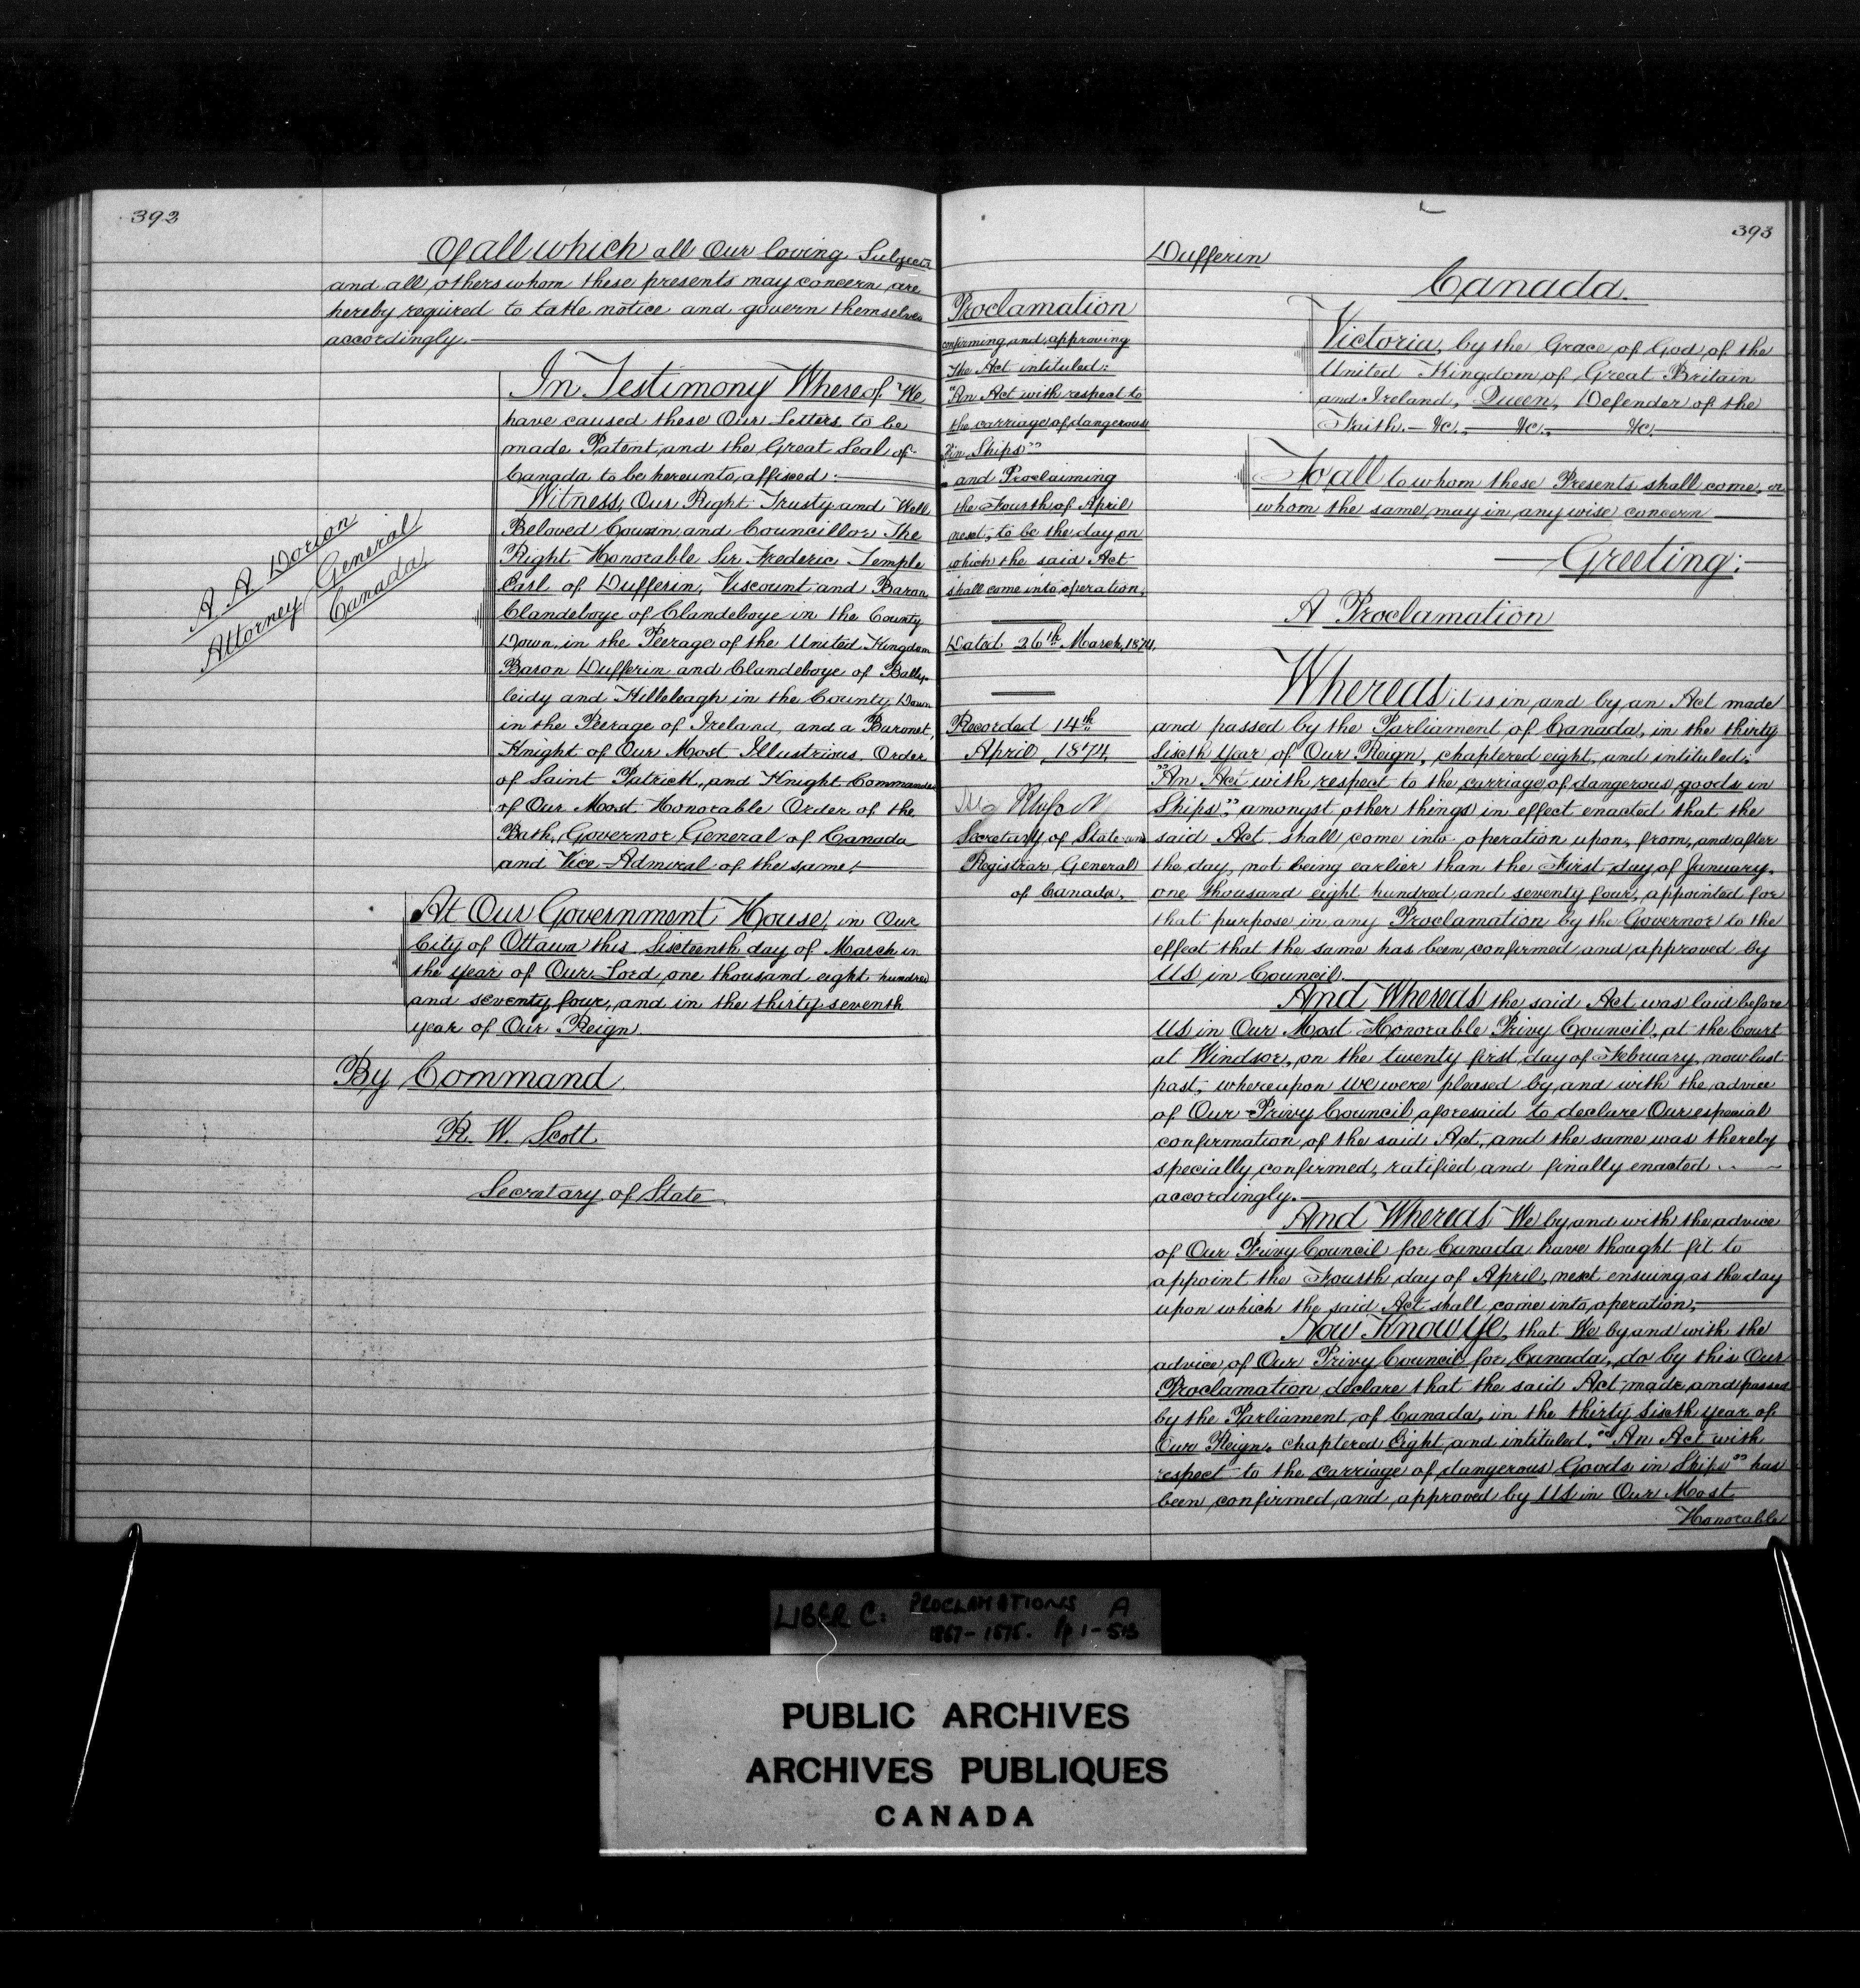 392
Of all which all Our loving Subjects
and all others whom these presents may concern are
hereby required to take notice and govern themselves
accordingly.
In Testimony Whereof We
have caused these Our Letters to be
made Patent and the Great Seal of
Canada to be hereunto affixed:
Witness, Our Right Trusty and Well
Beloved Cousin and Councillor The
Right Honorable Sir Frederic Temple
Earl of Dufferin, Viscount and Baron
Clandeboye of Clandeboye in the County
Down, in the Peerage of the United Kingdom
Baron Dufferin and Clandeboye of Bally-
leidy and Killeleagh in the County Down
in the Peerage of Ireland, and a Baronet,
Knight of Our Most Illustrious Order
of Saint Patrick, and Knight Commander
of Our Most Honorable Order of the
Bath, Governor General of Canada
and Vice-Admiral of the same:
A. A. Dorion
Attorney General
Canada
At Our Government House, in Our
City of Ottawa this Sixteenth day of March in
the year of Our Lord, one thousand eight hundred
and seventy four, and in the thirty seventh
year of Our Reign.
By Command
R. W. Scott
Secretary of State
393
Dufferin
Canada.
Proclamation
confirming and approving
the Act intituled:
"An Act with respect to
the carriage of dangerous
in Ships"
and Proclaiming
the Fourth of April
next, to be the day on
which the said Act
shall come into operation.
Dated 26th March, 1874.
Recorded 14th
April, 1874
Secretary of State and
Registrar General
of Canada.
Victoria, by the Grace of God, of the
United Kingdom of Great Britain
and Ireland, Queen, Defender of the
Faith.— &c., &c., &c.
To all to whom these Presents shall come, or
whom the same may in any wise concern
Greeting:—
A Proclamation
Whereas it is in and by an Act made
and passed by the Parliament of Canada, in the thirty
Sixth Year of Our Reign, chaptered eight, and intituled:
"An Act with respect to the carriage of dangerous goods in
Ships", amongst other things in effect enacted that the
said Act shall come into operation upon, from, and after
the day, not being earlier than the First day of January,
one thousand eight hundred and seventy four, appointed for
that purpose in any Proclamation by the Governor to the
effect that the same has been confirmed and approved by
US in Council.
And Whereas the said Act was laid before
US in Our Most Honorable Privy Council, at the Court
at Windsor, on the twenty first day of February, now last
past, whereupon We were pleased by and with the advice
of Our Privy Council aforesaid to declare Our especial
confirmation of the said Act, and the same was thereby
specially confirmed, ratified and finally enacted
accordingly.
And Whereas We by and with the advice
of Our Privy Council for Canada have thought fit to
appoint the Fourth day of April, next ensuing as the day
upon which the said Act shall come into operation;
Now Know Ye, that We by and with the
advice of Our Privy Council for Canada, do by this Our
Proclamation declare that the said Act made and passed
by the Parliament of Canada, in the thirty Sixth year of
Our Reign, chaptered Eight and intituled, "An Act with
respect to the carriage of dangerous Goods in Ships" has
been confirmed and approved by US in Our Most
Honorable
LIBER C: PROCLAMATIONS A
1867-1875. Pp 1-513
PUBLIC ARCHIVES
ARCHIVES PUBLIQUES
CANADA